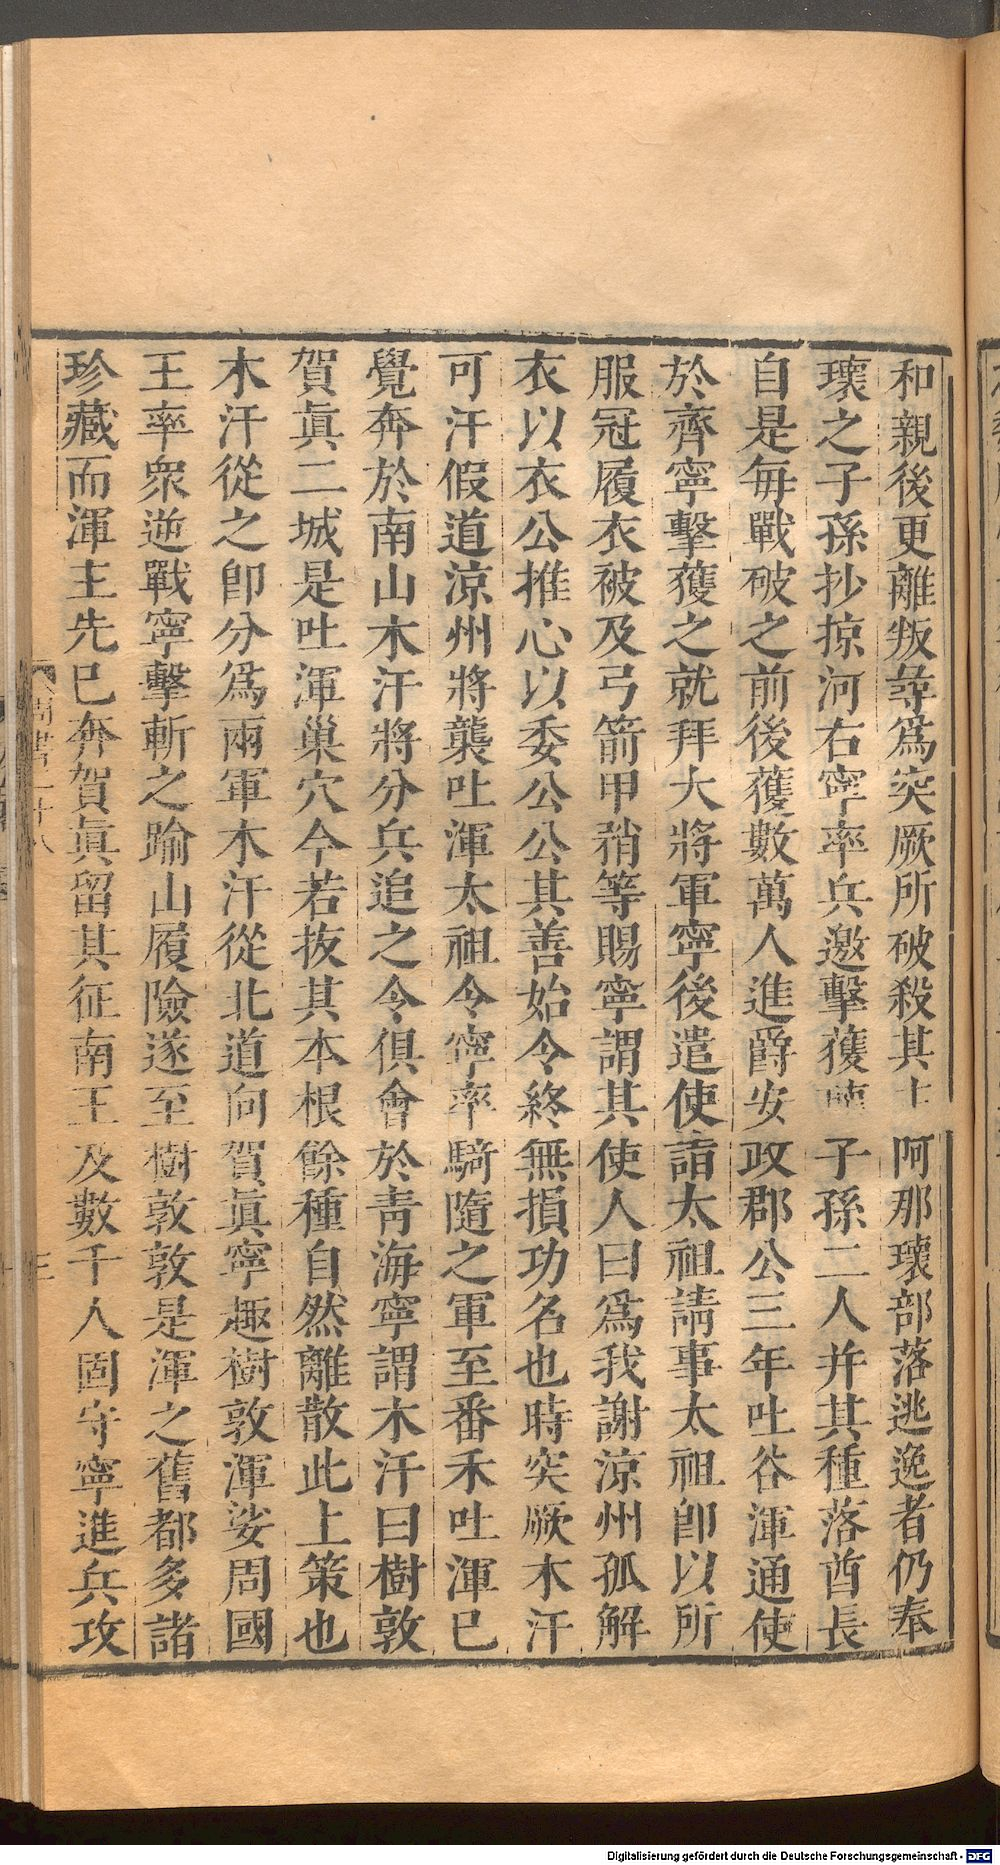 和親後更離叛尋爲突厥所破殺其主阿那瓌部落逃逸者仍奉
瓌之子孫抄掠河右寧率兵邀擊獲瓌子孫二人并其種落酋長
自是每戰破之前後獲數萬人進爵安政郡公三年吐谷渾通使
於齊寧擊獲之就拜大將軍寧後遣使詣太祖請事太祖卽以所
服冠履衣被及弓箭甲矟等賜寧謂其使人曰爲我謝涼州孤解
衣以衣公推心以委公公其善始令終無損功名也時突厥木汗
可汗假道涼州將襲吐渾太祖令寧率騎隨之軍至番禾吐渾已
覺奔於南山木汗將分兵追之令俱會於靑海寧謂木汗曰樹敦
賀眞二城是吐渾巢穴今若拔其本根餘種自然離散此上策也
木汗從之卽分爲兩軍木汗從北道向賀眞寧趣樹敦渾娑周國
王率衆逆戰寧擊斬之踰山履險遂至樹敦敦是渾之舊都多諸
珍藏而渾主先已奔賀眞留其征南王及數千人固守寧進兵攻
周書二十八
三
Digitalisierung gefördert durch die Deutsche Forschungsgemeinschaft - DFG